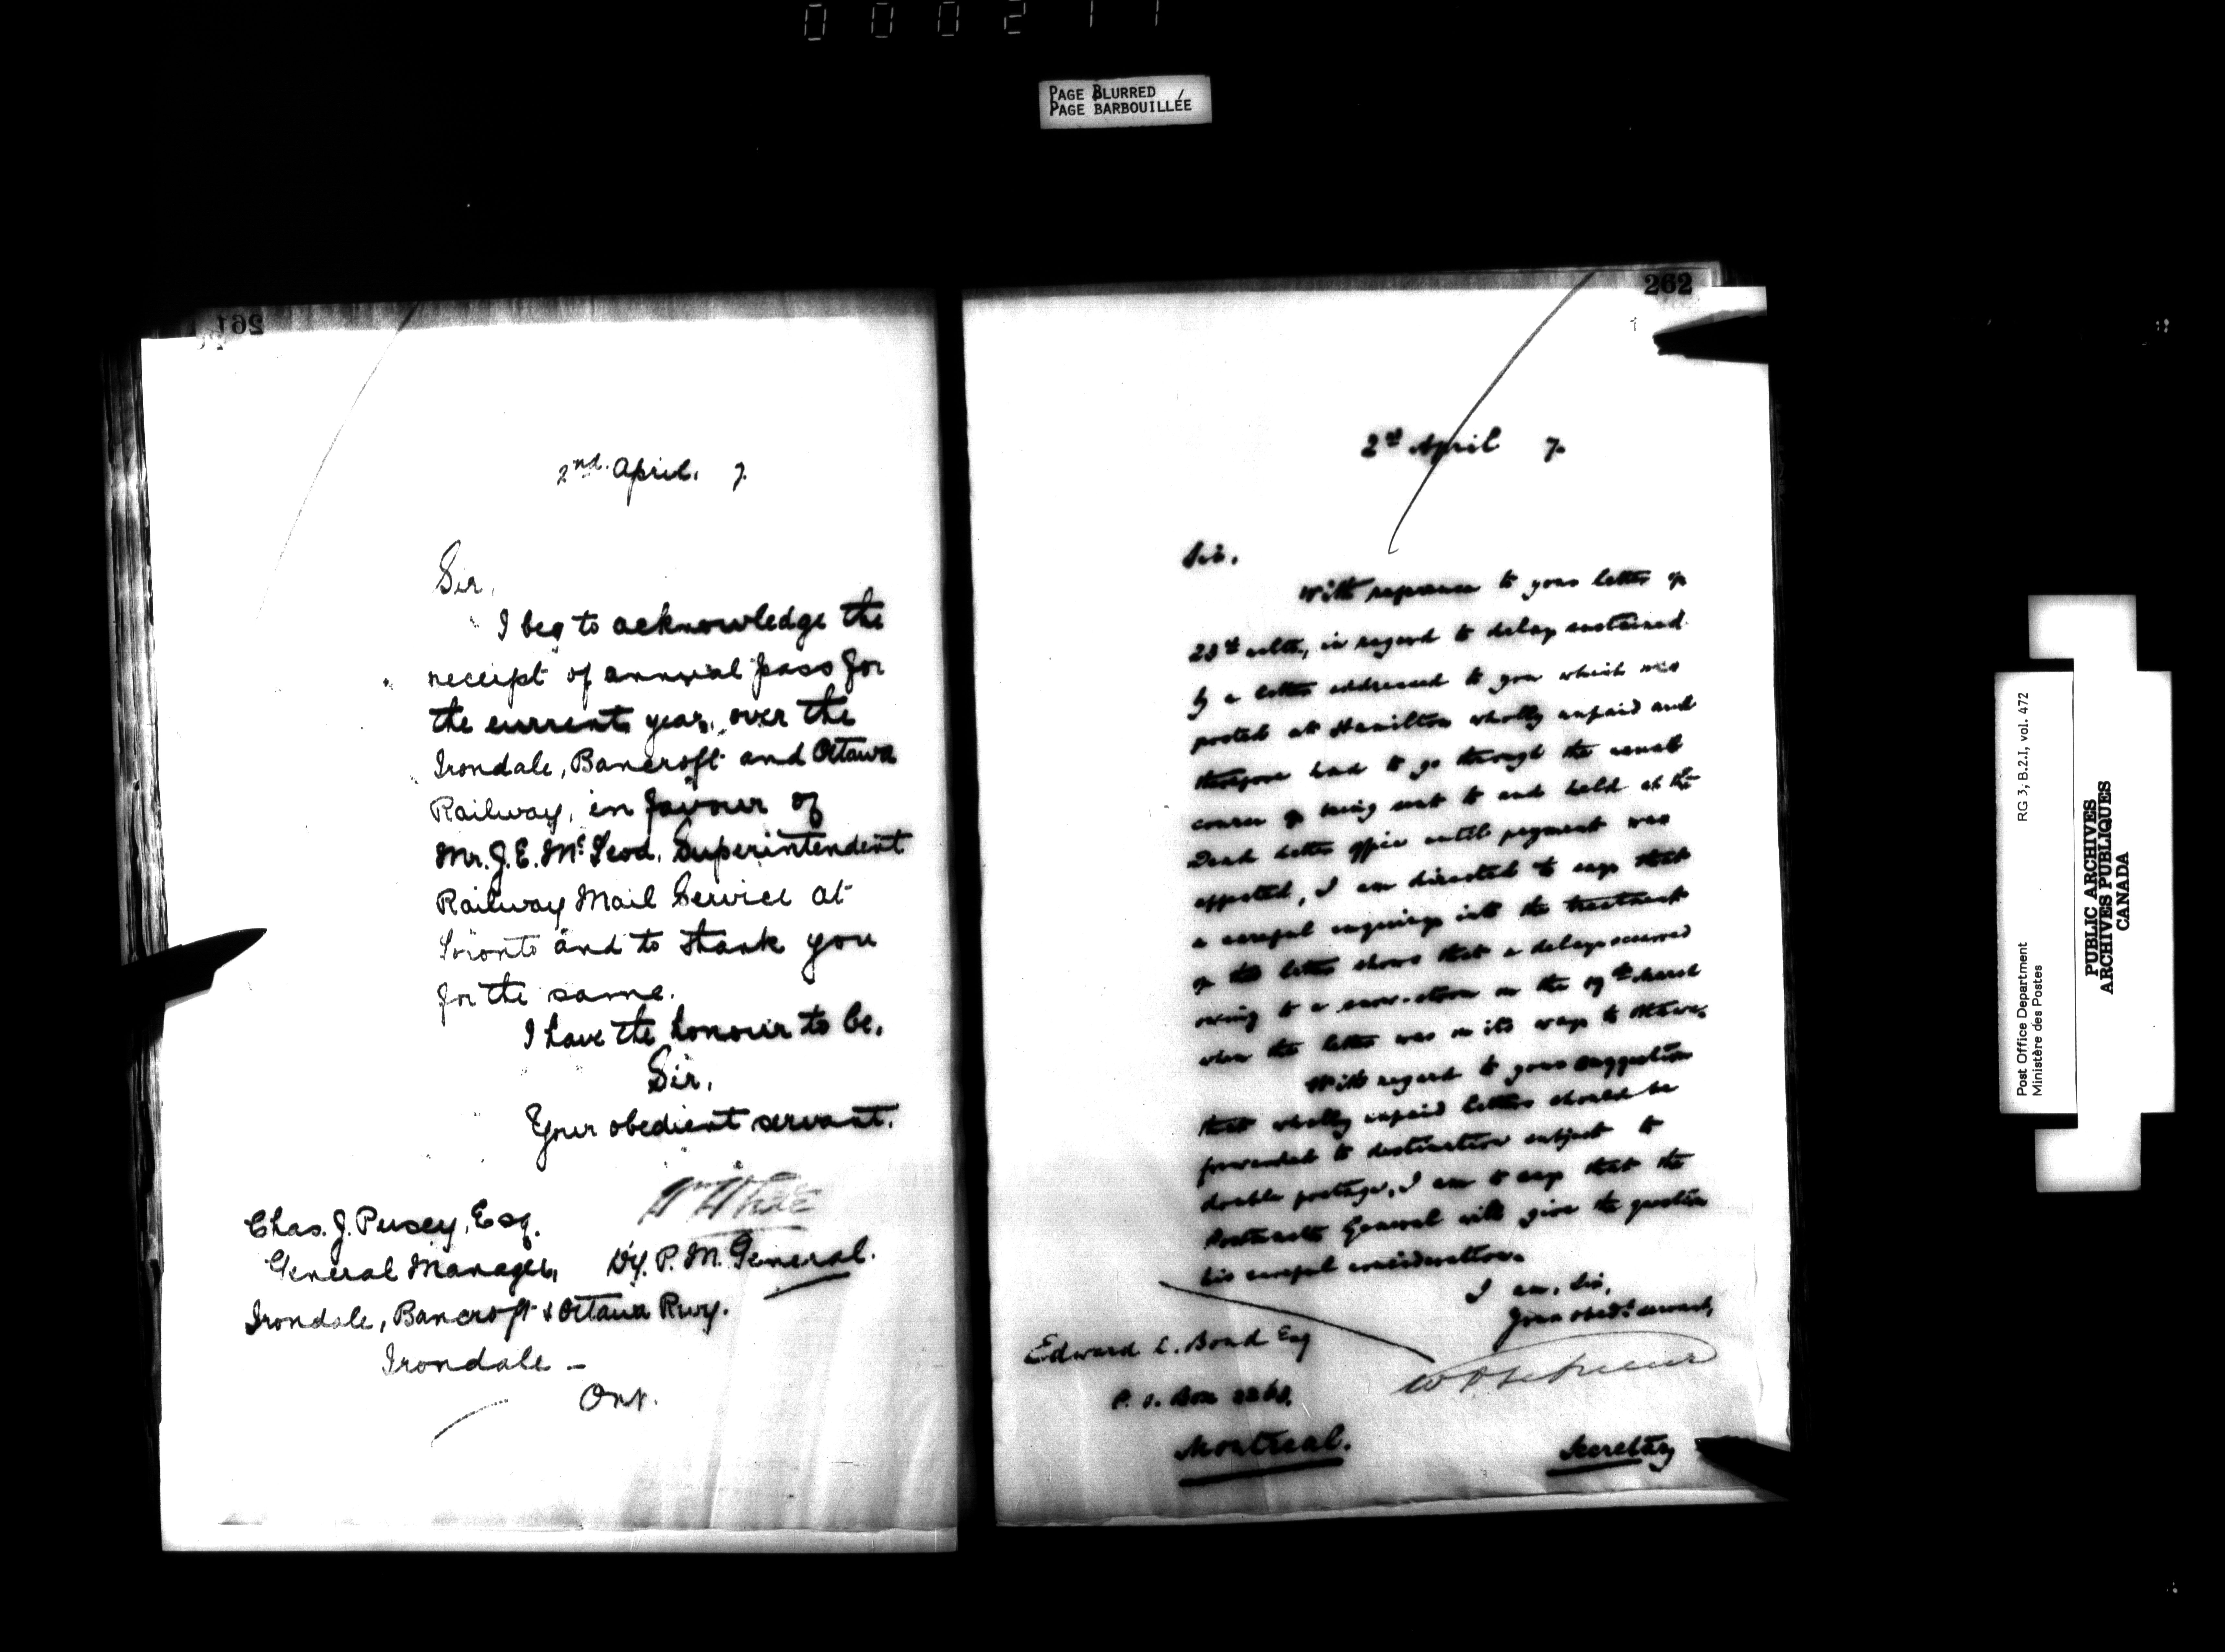 000211
PAGE BLURRED
PAGE BARBOUILLÉE
261
2nd. April. 7.
Sir,
I beg to acknowledge the
receipt of annual pass for
the current year, over the
Irondale, Bancroft and Ottawa
Railway, in favour of
Mr. J. E. McLeod, Superintendent
Railway Mail Service at
Toronto and to thank you
for the same.
I have the honour to be,
Sir,
Your obedient servant.
Wm White
Dy. P. M. General.
Chas. J. Pusey, Esq.
General Manager,
Irondale, Bancroft & Ottawa Rwy.
Irondale –
Ont.
262
2nd April 7.
Sir,
With reference to your letter of
ulto, in regard to delay sustained
by a letter addressed to you which was
posted at Hamilton wholly unpaid and
therefore had to go through the usual
course of being sent to and held at the
Dead Letter Office until payment was
effected, I am directed to say that
a careful enquiry into the treatment
of the letter shows that a delay occurred
owing to a snow-storm on the March
when the letter was on its way to Ottawa.
With regard to your suggestion
that wholly unpaid letters should be
forwarded to destination subject to
double postage, I am to say that the
Postmaster General will give the question
his careful consideration.
I am, Sir,
Your obedt. servant,
Secretary
Edward L. Bond Esq
P. O. Box
Montreal.
Post Office Department
Ministère des Postes
RG 3, B.2.I, vol. 472
PUBLIC ARCHIVES
ARCHIVES PUBLIQUES
CANADA